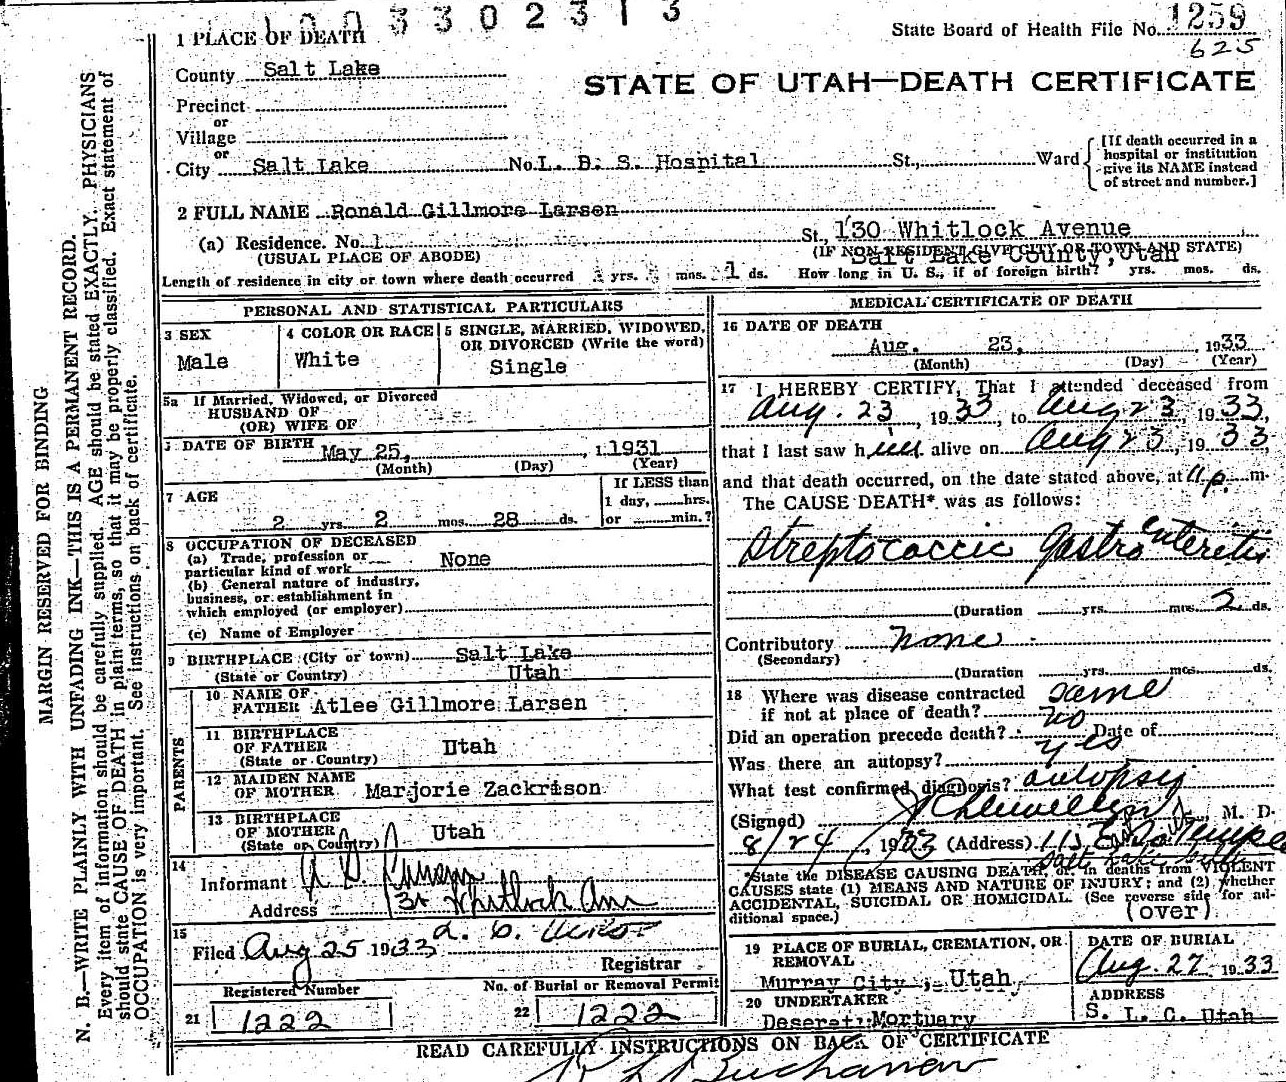 003302313
State Board of Health File No. 1259
625
1 PLACE OF DEATH
County Salt Lake
STATE OF UTAH—DEATH CERTIFICATE
Precinct
or
Village
or
City Salt Lake No. L. D. S. Hospital St., Ward
[If death occurred in a
hospital or institution
give its NAME instead
of street and number.]
2 FULL NAME Ronald Gillmore Larsen
(a) Residence. No. St., 130 Whitlock Avenue
(USUAL PLACE OF ABODE) (IF NON-RESIDENT GIVE CITY OR TOWN AND STATE)
Salt Lake County, Utah
Length of residence in city or town where death occurred yrs. mos. 1 ds. How long in U. S., if of foreign birth? yrs. mos. ds.
PERSONAL AND STATISTICAL PARTICULARS
3 SEX
Male
4 COLOR OR RACE
White
5 SINGLE, MARRIED, WIDOWED,
OR DIVORCED (Write the word)
Single
5a If Married, Widowed, or Divorced
HUSBAND OF
(OR) WIFE OF
DATE OF BIRTH May 25, 1931
(Month) (Day) (Year)
7 AGE
2 yrs. 2 mos. 28 ds.
If LESS than
1 day, hrs.
or min.?
8 OCCUPATION OF DECEASED
(a) Trade, profession or
particular kind of work None
(b) General nature of industry,
business, or establishment in
which employed (or employer)
(c) Name of Employer
9 BIRTHPLACE (City or town) Salt Lake
(State or Country) Utah
PARENTS
10 NAME OF
FATHER Atlee Gillmore Larsen
11 BIRTHPLACE
OF FATHER Utah
(State or Country)
12 MAIDEN NAME
OF MOTHER Marjorie Zackrison
13 BIRTHPLACE
OF MOTHER Utah
(State or Country)
14
Informant
Address Whitlock Ave
15
Filed Aug 25 1933
Registrar
Registered Number
21 1222
No. of Burial or Removal Permit
22 1222
MEDICAL CERTIFICATE OF DEATH
16 DATE OF DEATH
Aug. 23, 1933
(Month) (Day) (Year)
17 I HEREBY CERTIFY, That I attended deceased from
Aug. 23, 1933, to Aug 23, 1933,
that I last saw him alive on Aug 23, 1933,
and that death occurred, on the date stated above, at p. m.
The CAUSE DEATH* was as follows:
Streptococcic Gastro Enteritis
(Duration yrs. mos 2 ds.
Contributory None
(Secondary)
(Duration yrs. mos. ds.
18 Where was disease contracted
if not at place of death? same
Did an operation precede death? no Date of
Was there an autopsy? yes
What test confirmed diagnosis? autopsy
(Signed) Llewellyn, M. D.
8/24, 1933 (Address) 115 E So Temple
*State the DISEASE CAUSING DEATH, or, in deaths from VIOLENT
CAUSES state (1) MEANS AND NATURE OF INJURY; and (2) whether
ACCIDENTAL, SUICIDAL OR HOMICIDAL. (See reverse side for ad-
ditional space.) (over)
19 PLACE OF BURIAL, CREMATION, OR
REMOVAL
Murray City, Utah
DATE OF BURIAL
Aug. 27 1933
20 UNDERTAKER
Deseret Mortuary
ADDRESS
S. L. C. Utah
READ CAREFULLY INSTRUCTIONS ON BACK OF CERTIFICATE
Buchanan
MARGIN RESERVED FOR BINDING
N. B.—WRITE PLAINLY WITH UNFADING INK—THIS IS A PERMANENT RECORD.
Every item of information should be carefully supplied. AGE should be stated EXACTLY. PHYSICIANS
should state CAUSE OF DEATH in plain terms, so that it may be properly classified. Exact statement of
OCCUPATION is very important. See instructions on back of certificate.